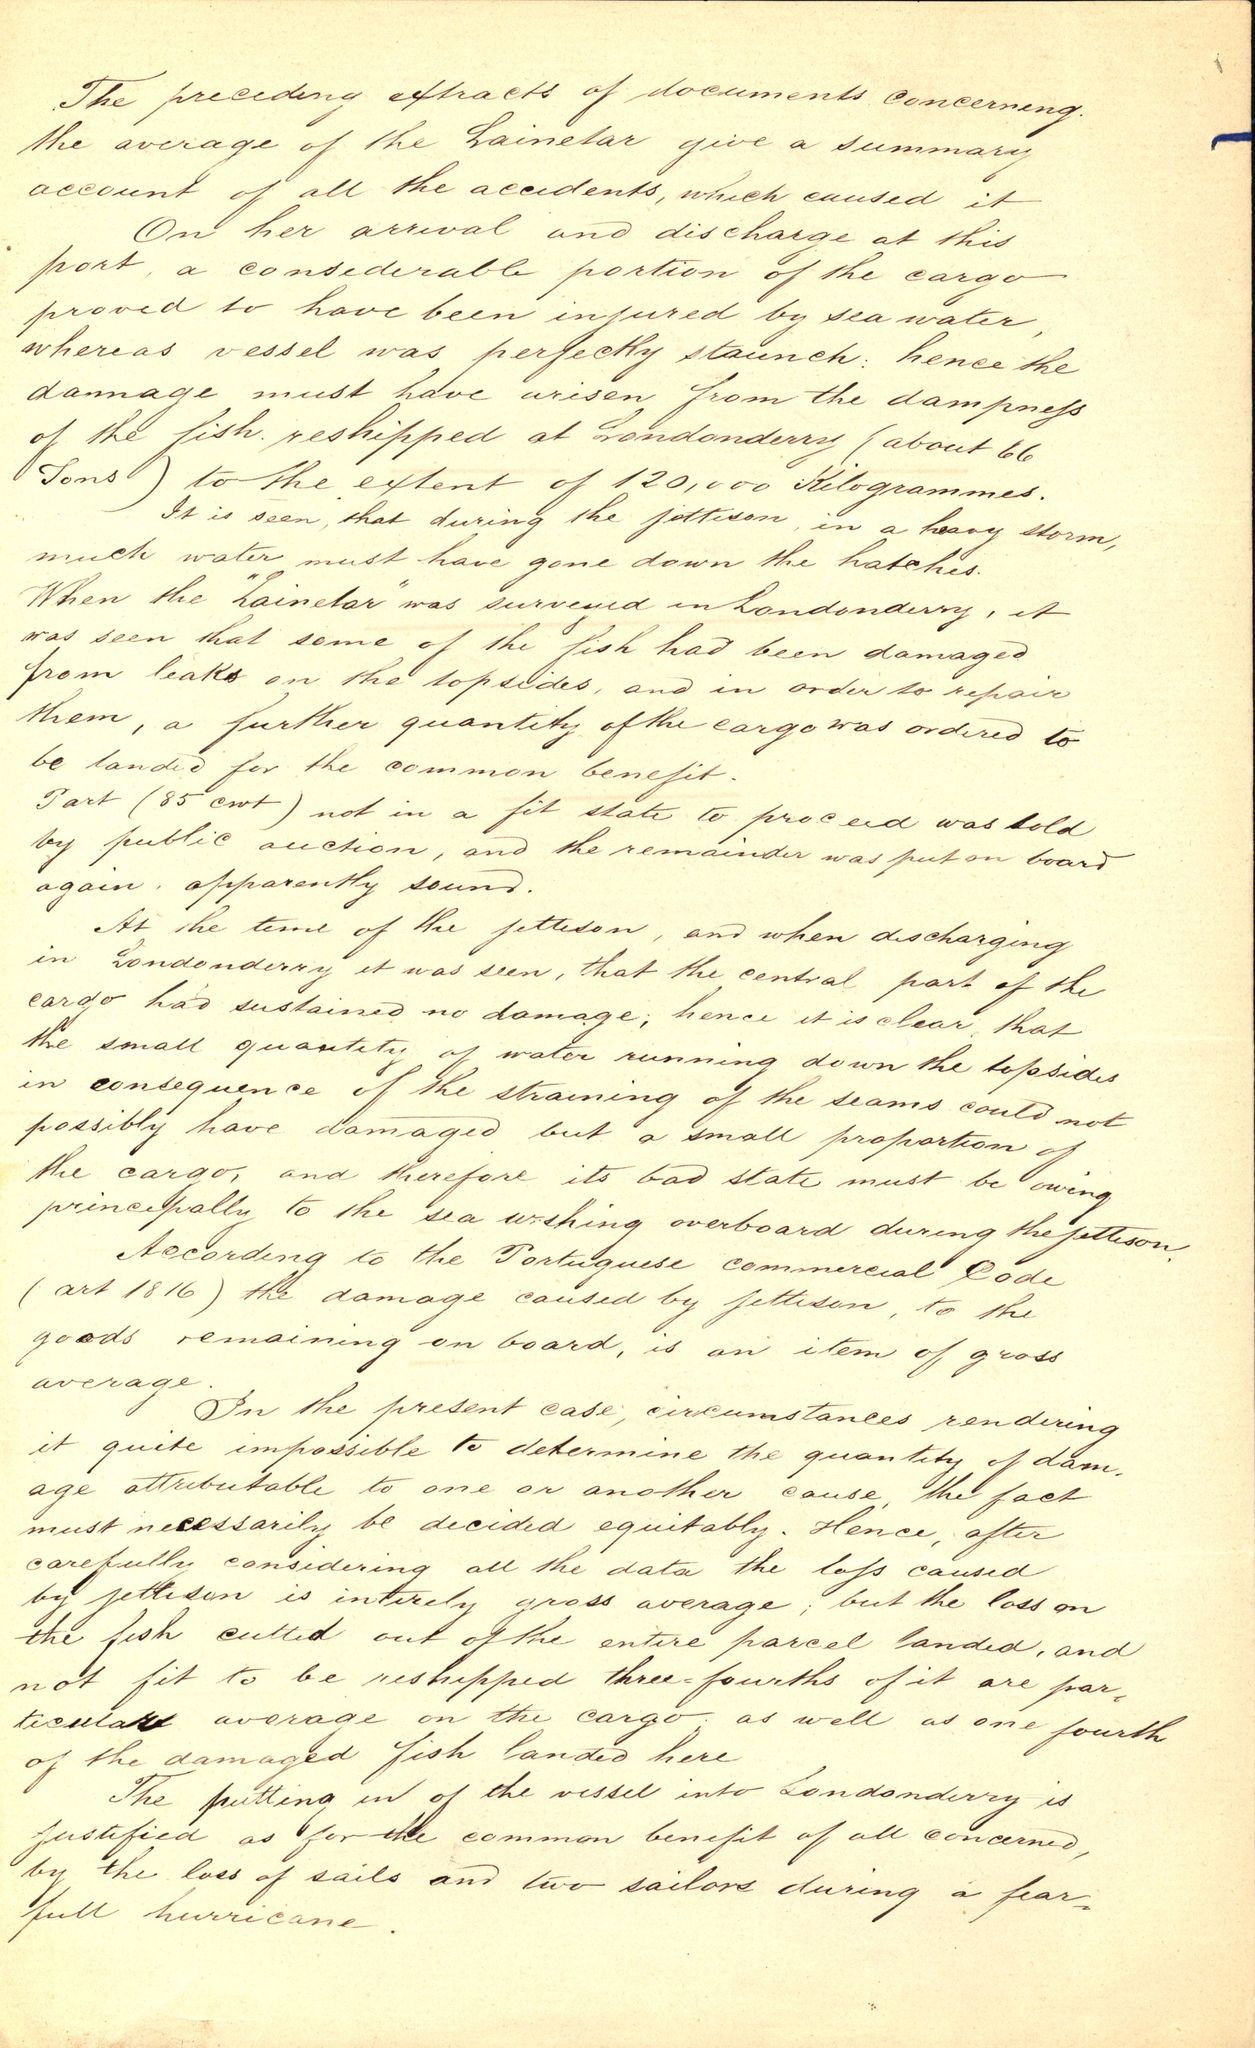 The preceding extracts of documents concerning.
the average of the Lainetar give a summary
account of all the accidents, which caused it
On her arrival and discharge at this
port, a considerable portion of the cargo
proved to have been injured by sea water,
whereas vessel was perfectly staunch: hence the
damage must have arisen from the dampness
of the fish. reshipped at Londonderry (about 66
Tons) to the extent of 120,000 Kilogrammes.
It is seen, that during the jettison, in a heavy storm,
much water must have gone down the hatches.
When the "Lainetar" was surveyed in Londonderry, it
was seen that some of the fish had been damaged
from leaks on the topsides, and in order to repair
them, a further quantity of the cargo was ordered to
be landed for the common benefit.
Part (85 cwt) not in a fit state to proceed was sold
by public auction, and the remainder was put on board
again, apparently sound.
At the time of the jettison, and when discharging
in Londonderry it was seen, that the central part of the
cargo had sustained no damage; hence it is clear, that
the small quantity of water running down the topsides
in consequence of the straining of the seams could not
possibly have damaged but a small proportion of
the cargo, and therefore its bad state must be owing
principally to the sea washing overboard during the jettison.
According to the Portuguese commercial Code
(art 1816) the damage caused by jettison, to the
goods remaining on board, is an item of gross
average.
In the present case, circumstances rendering
it quite impossible to determine the quantity of dam-
age attributable to one or another cause, the fact
must necessarily be decided equitably. Hence, after
carefully considering all the data the loss caused
by jettison is intirely gross average; but the loss on
the fish culled out of the entire parcel landed, and
not fit to be reshipped three-fourths of it are par-
ticular average on the cargo, as well as one fourth
of the damaged fish landed here
The putting in of the vessel into Londonderry is
justified as for the common benefit of all concerned,
by the loss of sails and two sailors during a fear-
full hurricane.